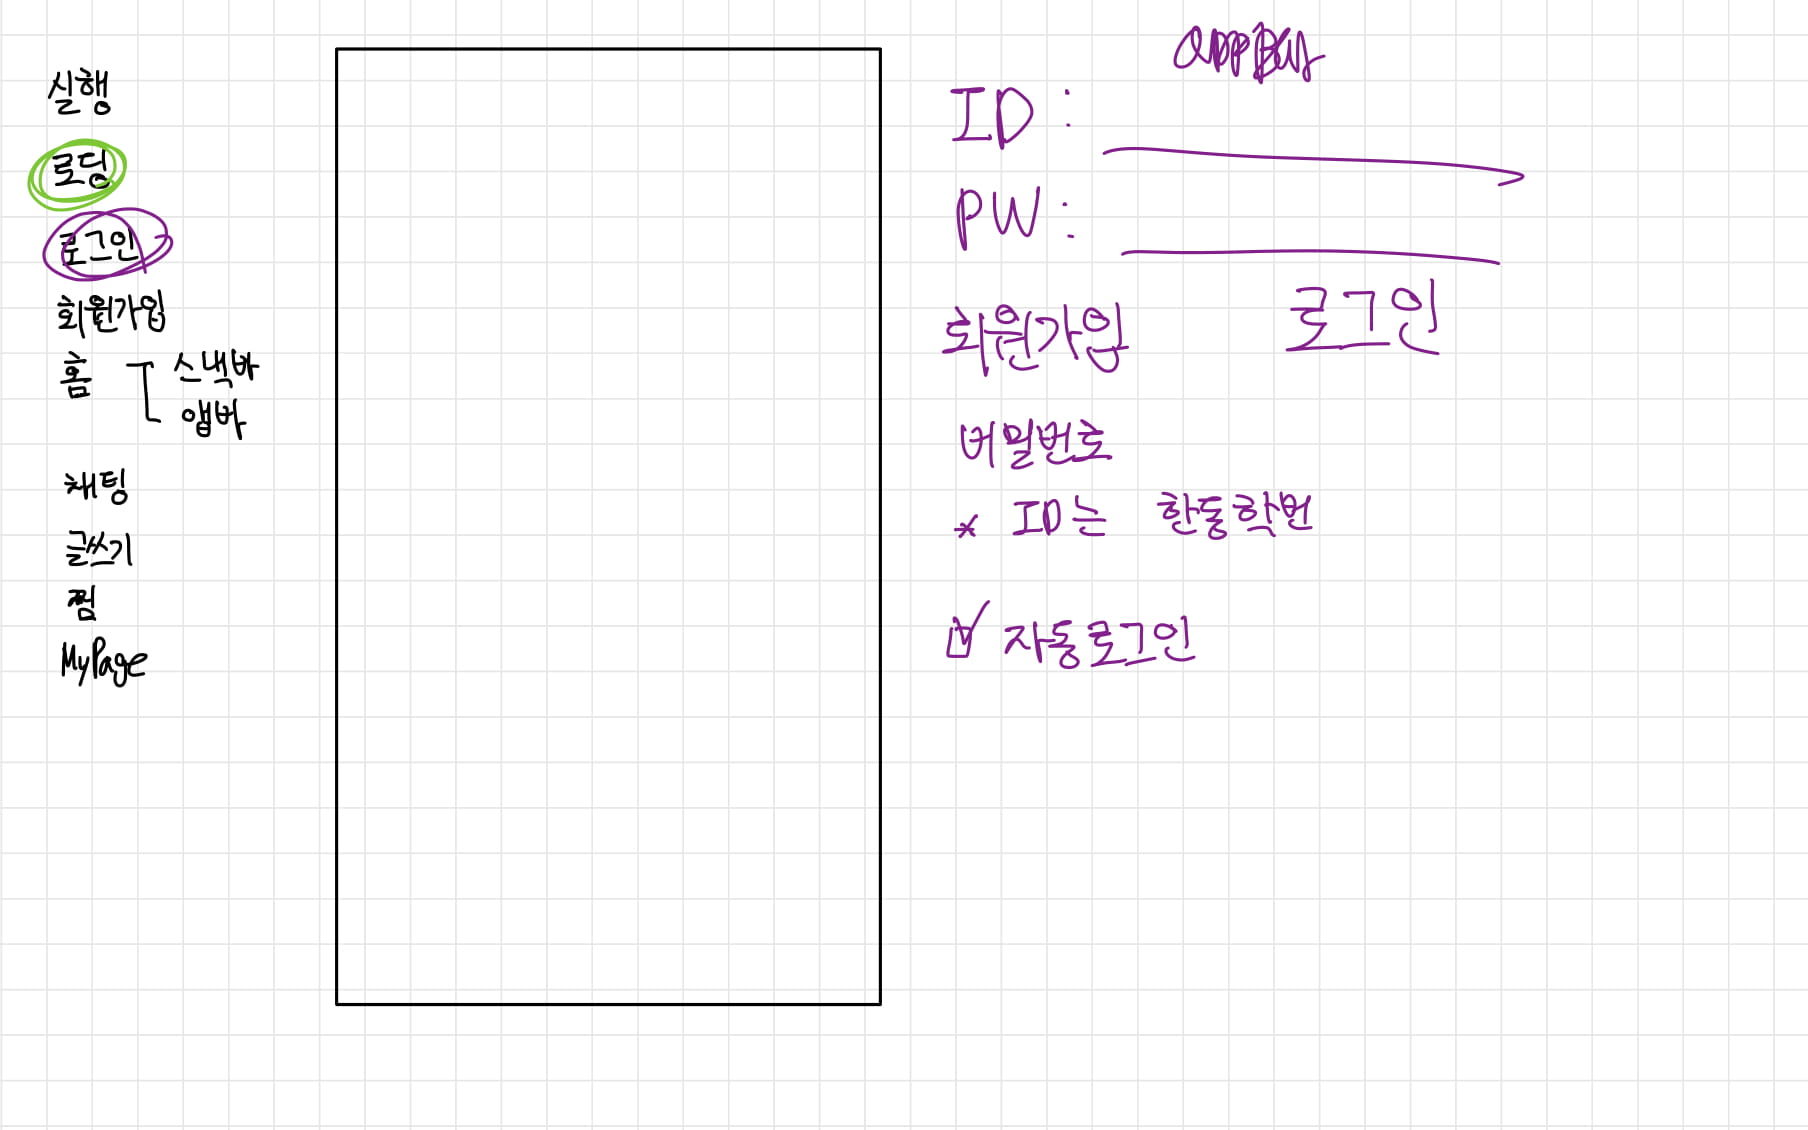 실행
로딩
로그인
회원가입
홈
스낵바
앱바
채팅
글쓰기
찜
MyPage
appBar
ID :
PW :
회원가입
로그인
비밀번호
* ID는 한동학번
자동로그인